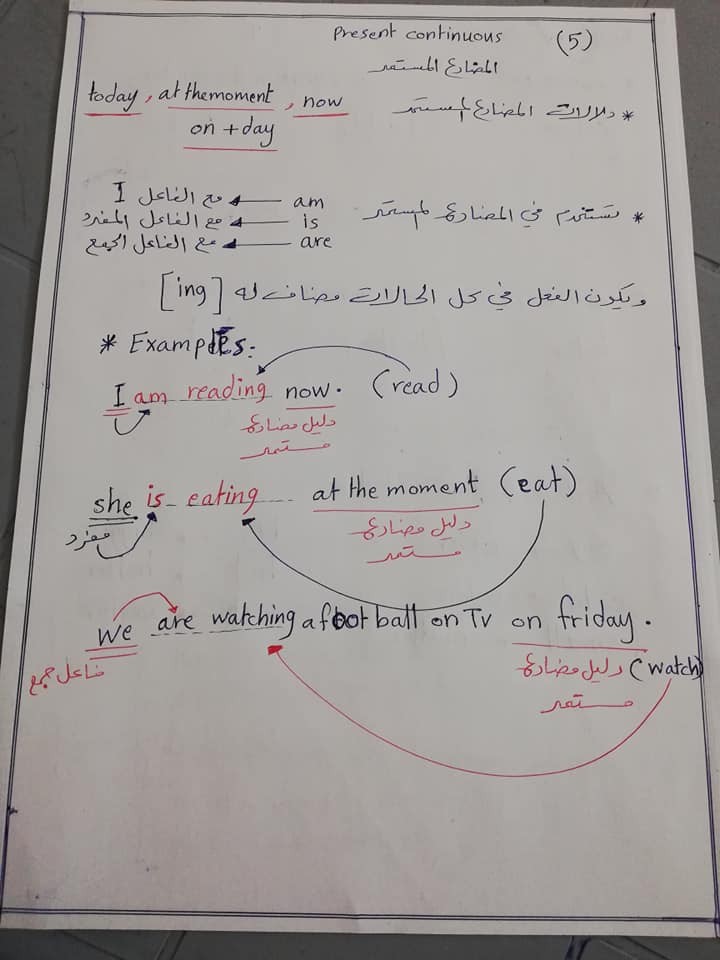 Present continuous (5)
المضارع المستمر
* دلالات المضارع المستمر today, at the moment, now
on + day
* تستخدم في المضارع المستمر am ← مع الفاعل I
is ← مع الفاعل المفرد
are ← مع الفاعل الجمع
ويكون الفعل في كل الحالات مضاف له [ing]
* Examples:
I am reading now. (read)
دليل مضارع
مستمر
she is eating at the moment (eat)
مفرد
دليل مضارع
مستمر
we are watching a football on Tv on friday.
فاعل جمع
دليل مضارع (watch)
مستمر